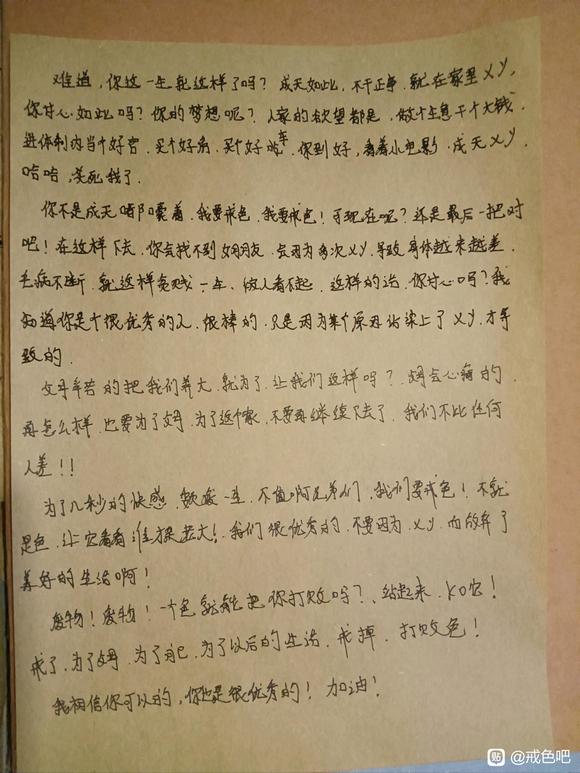 难道，你这一生就这样了吗？成天如此，不干正事，就在家里XY，
你甘心如此吗？你的梦想呢？人家的欲望都是，做个生意干个大钱，
进体制内当个好官，买个好房，买个好吃车，你到好，看看小电影，成天XY，
哈哈，笑死我了。
你不是成天嘟囔着，我要戒色，我要戒色！可现在呢？还是最后一把对
吧！在这样下去，你会找不到女朋友，会因为多次XY，导致身体越来越差，
毛病不断，就这样贱一生，做人看不起，这样的话，你甘心吗？我
知道你是个很优秀的人，很棒的，只是因为某个原因沾染上了XY，才导
致的。
父母辛苦的把我们养大，就为了让我们这样吗？母会心痛的，
再怎么样，也要为了父母，为了这个家，不要再继续下去了，我们不比任何
人差！！
为了几秒的快感，颓废一生，不值啊兄弟们，我们要戒色！不就
是色，让它看看谁是老大！我们很优秀的，不要因为，XY，而放弃了
美好的生活啊！
废物！废物！一个色就能把你打败吗？、站起来，KO它！
戒了，为了父母，为了自己，为了以后的生活，戒掉，打败色！
我相信你可以的，你也是很优秀的！加油！
贴 @戒色吧